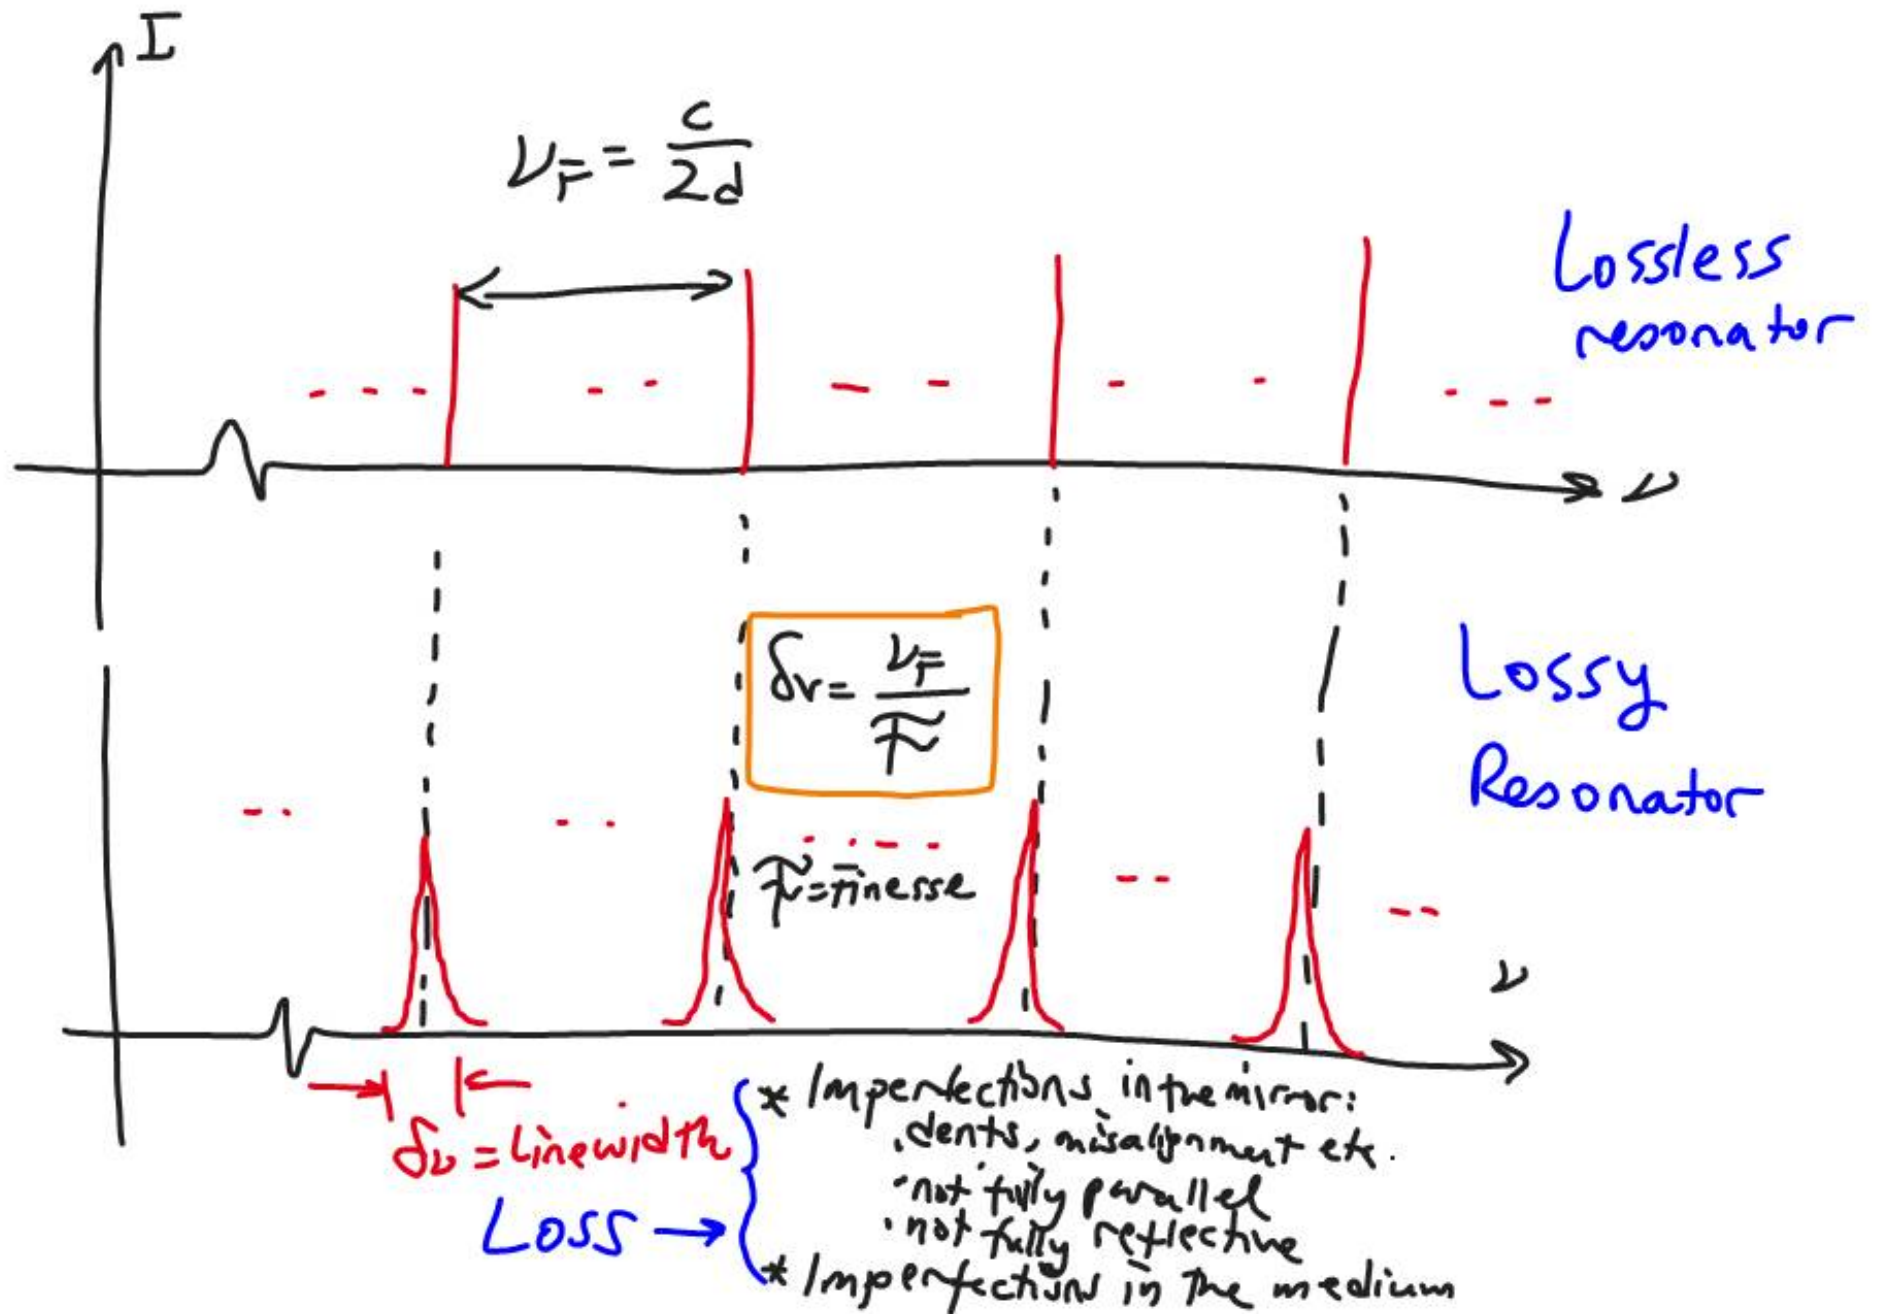 I
ν_F = c/2d
Lossless
resonator
ν
δν = ν_F/𝓕
Lossy
Resonator
𝓕 = Finesse
ν
δν = Linewidth
Loss →
* Imperfections in the mirror:
.dents, misalignment etc.
·not fully parallel
·not fully reflective
* Imperfections in the medium